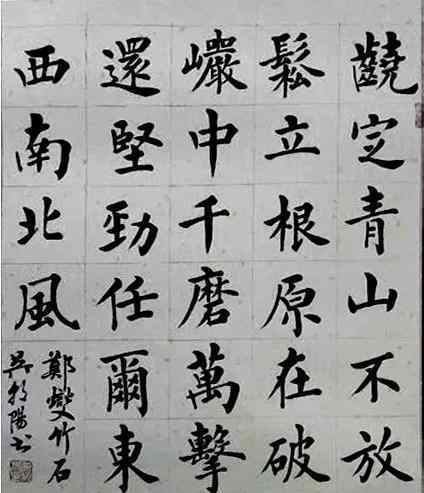 䶧定青山不放
鬆立根原在破
巗中千磨萬擊
還堅勁任爾東
西南北風
鄭燮竹石
吳陽书